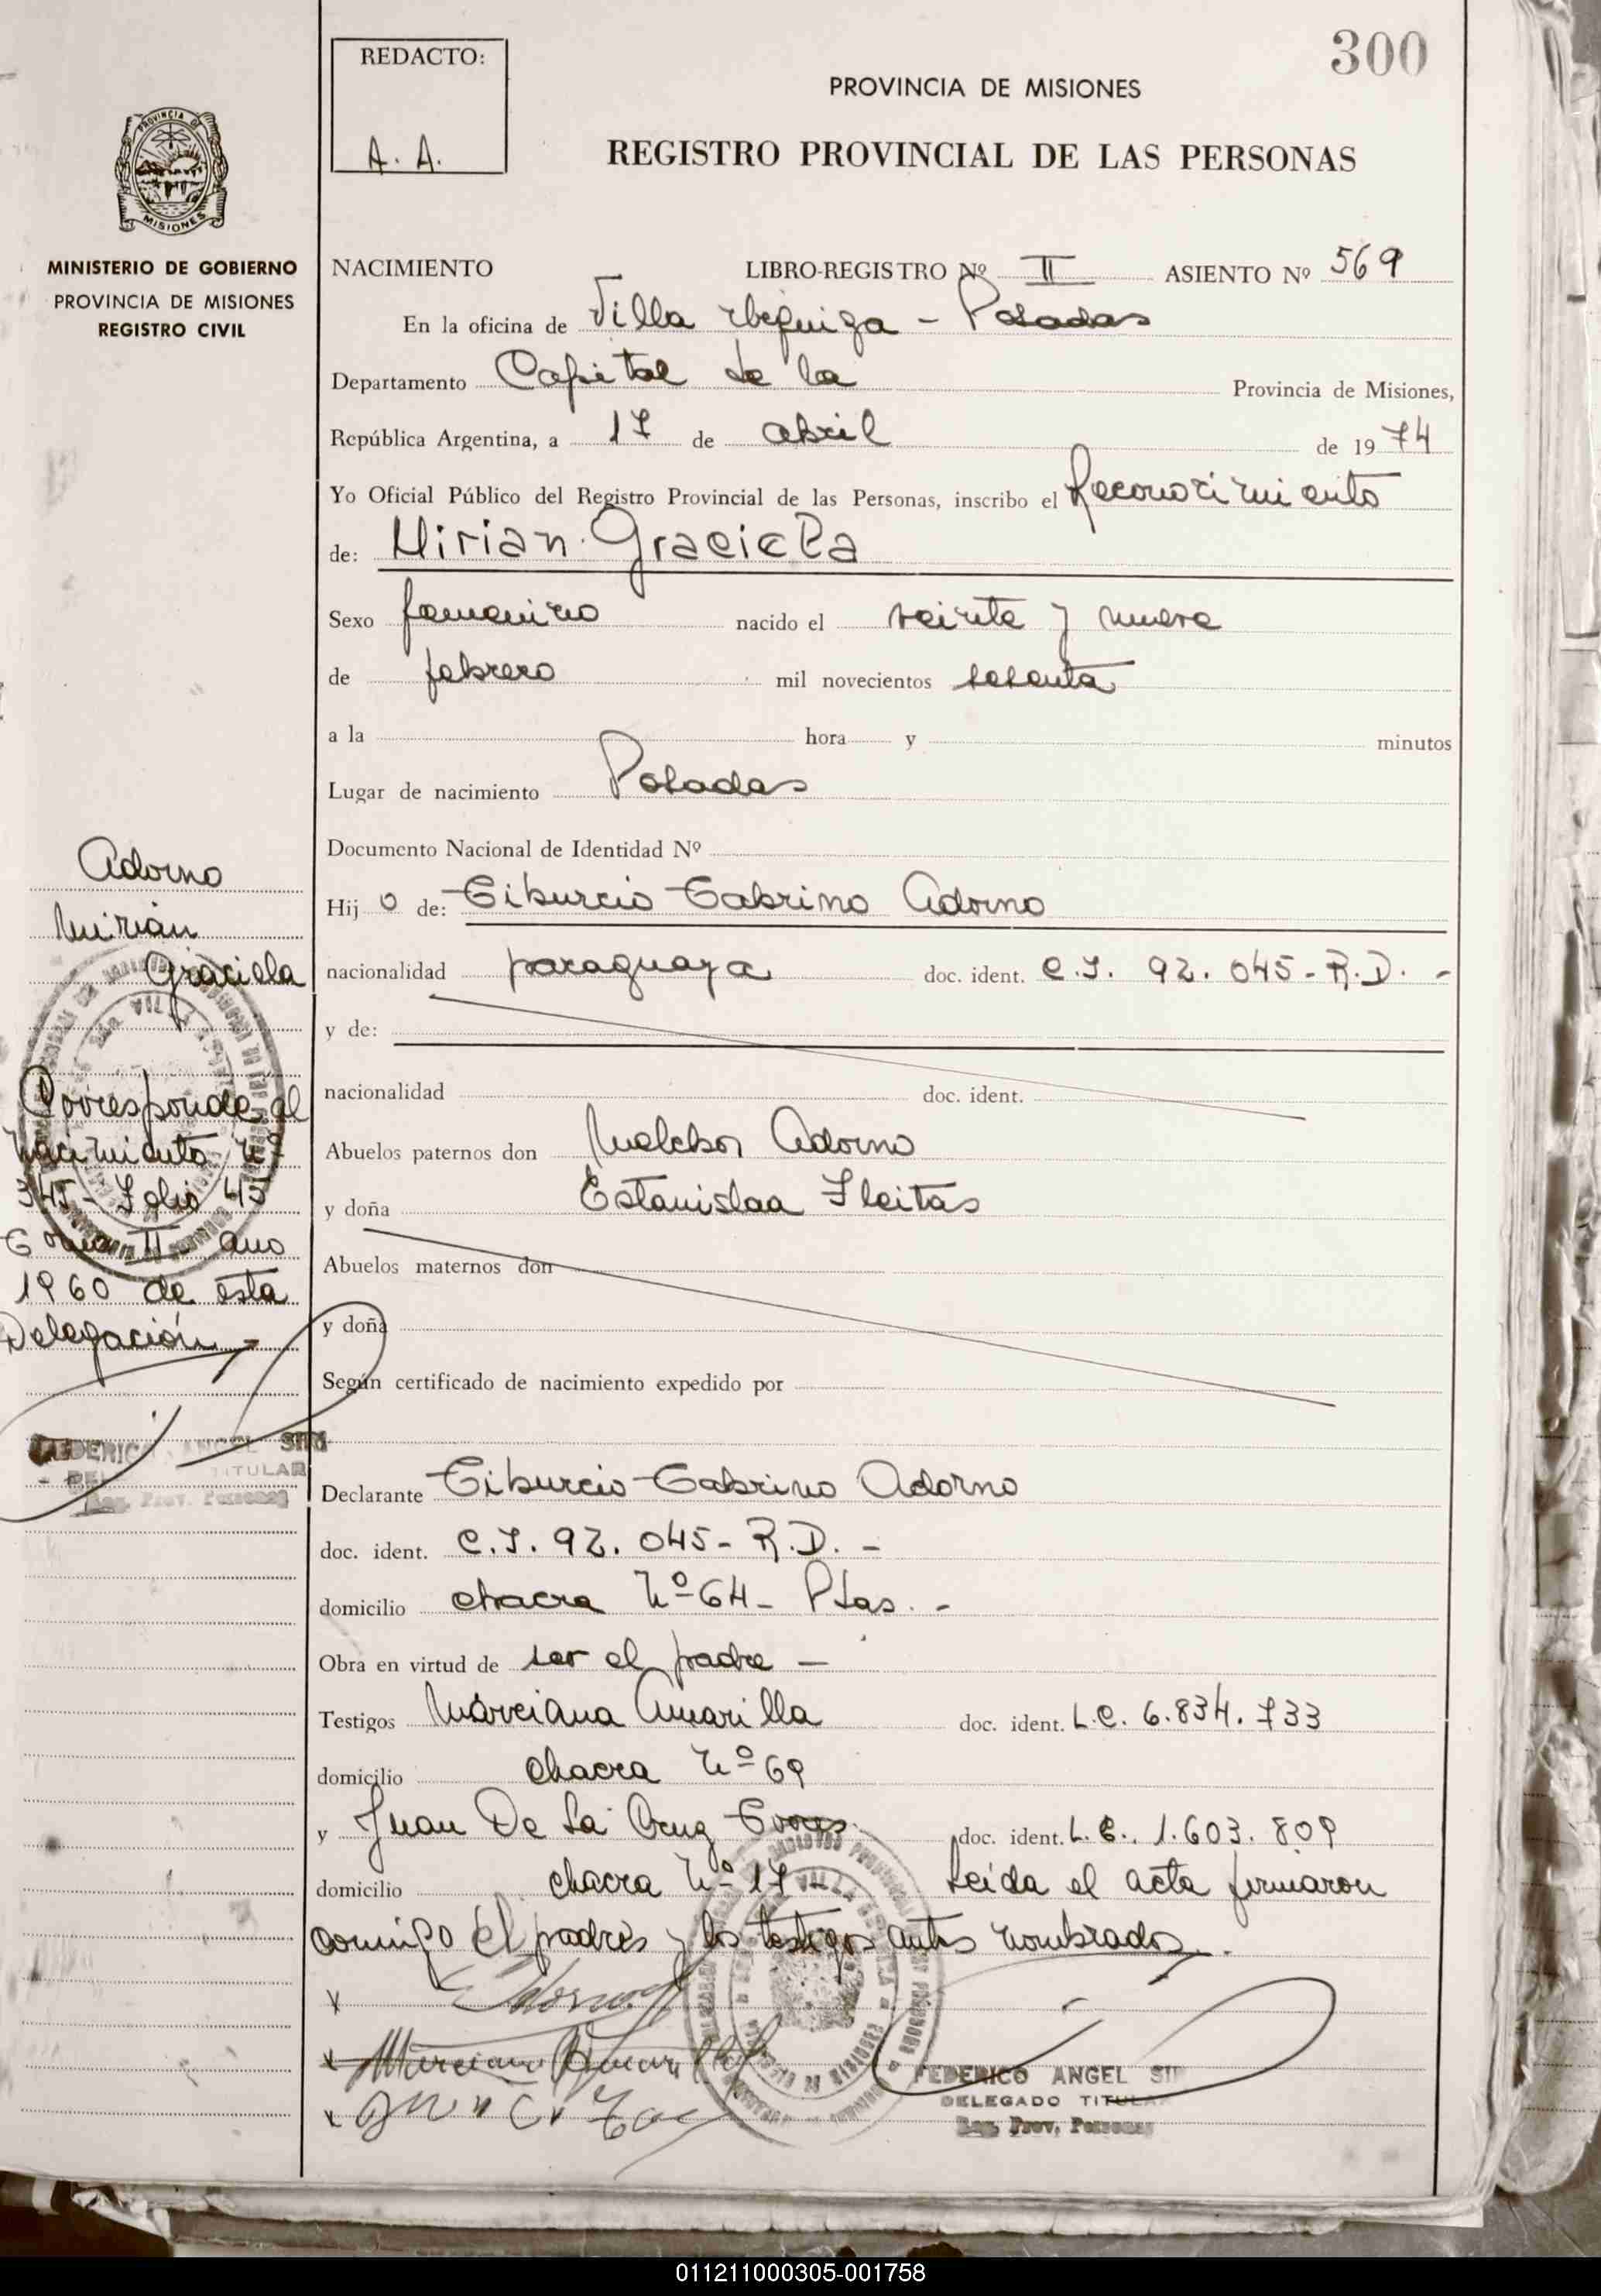 300
REDACTO:
A. A.
PROVINCIA DE MISIONES
REGISTRO PROVINCIAL DE LAS PERSONAS
PROVINCIA DE
MISIONES
MINISTERIO DE GOBIERNO
PROVINCIA DE MISIONES
REGISTRO CIVIL
NACIMIENTO LIBRO-REGISTRO Nº II ASIENTO Nº 569
En la oficina de Villa - Posadas
Departamento Capital de la Provincia de Misiones,
República Argentina, a 17 de abril de 1974
Yo Oficial Público del Registro Provincial de las Personas, inscribo el Reconocimiento
de: Mirian Graciela
Sexo femenino nacido el veinte y nueve
de febrero mil novecientos sesenta
a la hora y minutos
Lugar de nacimiento Posadas
Documento Nacional de Identidad Nº
Hij o de: Tiburcio Gabrino Adorno
nacionalidad paraguaya doc. ident. C.I. 92.045-R.D. -
y de:
nacionalidad doc. ident.
Abuelos paternos don Melchor Adorno
y doña Estanislaa Fleitas
Abuelos maternos don
y doña
Según certificado de nacimiento expedido por
Declarante Tiburcio Gabrino Adorno
doc. ident. C.I. 92.045- R.D. -
domicilio chacra Nº 64- Pdas. -
Obra en virtud de ser el padre -
Testigos Marciana Amarilla doc. ident. L.C. 6.834.733
domicilio chacra Nº 69
y Juan De La Cruz doc. ident. L.E. 1.603.809
domicilio chacra Nº 17- Leida el acta firmaron
conmigo el padre y los testigos antes nombrados.
Adorno
Mirian
Graciela
Corresponde al
nacimiento Nº
345- Folio 45
Tomo II año
1960 de esta
Delegación
FEDERICO ANGEL
TITULAR
Reg. Prov. Personas
x
x Marciana Amarilla
x
FEDERICO ANGEL
DELEGADO TITULAR
Reg. Prov. Personas
011211000305-001758